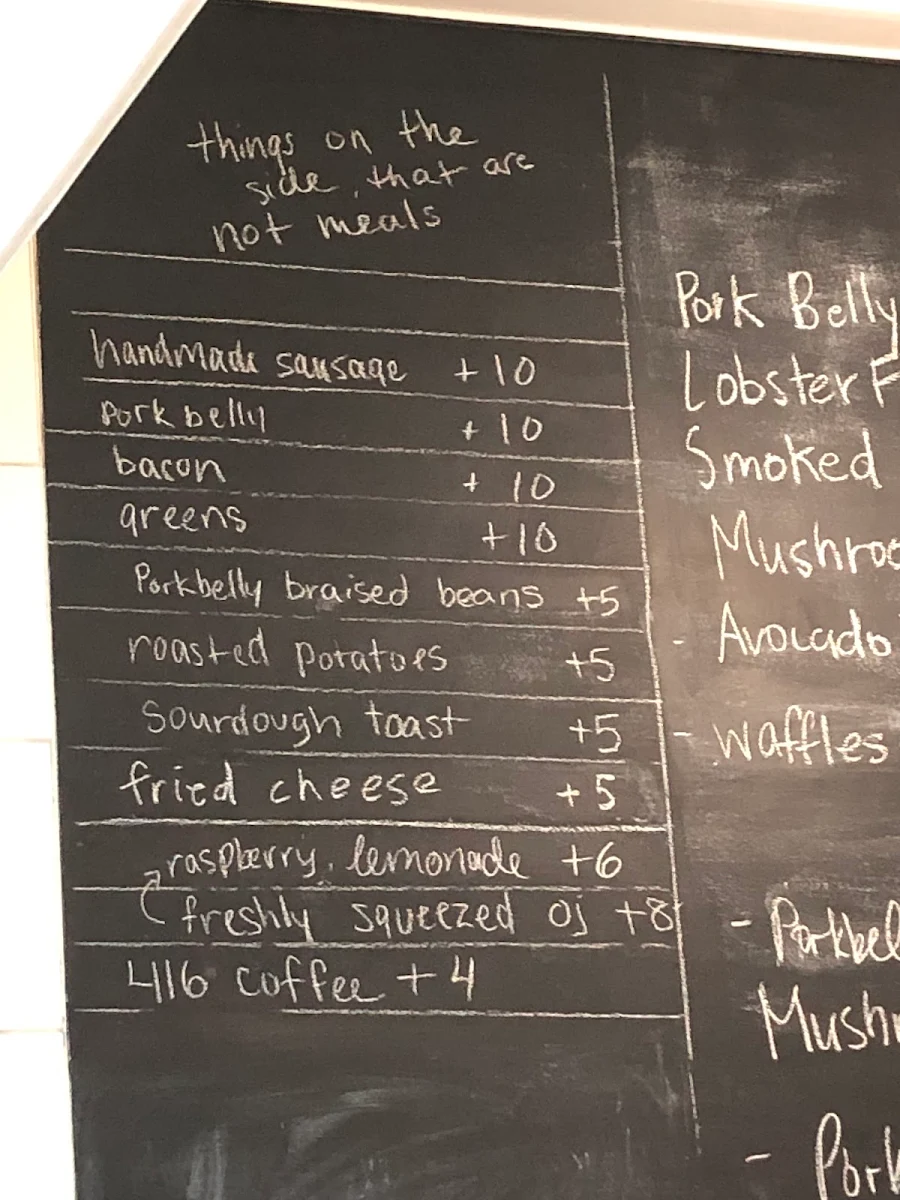 things on the
side, that are
not meals
handmade sausage +10
pork belly +10
bacon +10
greens +10
Porkbelly braised beans +5
roasted potatoes +5
Sourdough toast +5
fried cheese +5
raspberry lemonade +6
freshly squeezed oj +8
416 coffee +4
Pork Belly
Lobster
Smoked
- Avocado
- waffles